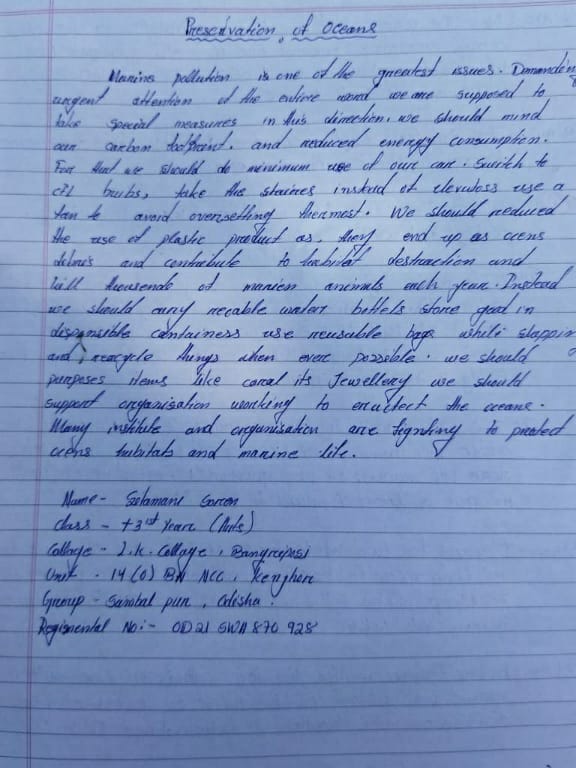 Preservation of Oceans
Marine pollution is one of the greatest issues. Demanding
urgent attention of the entire word we are supposed to
take special measures in this direction. we should mind
our carbon footprint. and reduced energy consumption.
For that we should do minimum use of our car. Switch to
cfl bulbs, take the staires instead of use a
fan to avoid oversetting thermost. We should reduced
the use of plastic product as, they end up as ocens
debris and contribute to habitat destraction and
kill thousends of marien animals each year. Instead
we should cary recable water bottels store good in
disponsible containess use reusable bags while slapping
and, reacycle things when evere possible. we should
purposes items like coral its Jewellery we should
support organisation working to the oceans.
Many institute and organisation are fighting to protect
ocens habitats and marine life.
Name - Soren
class - +3 1st Year (Arts)
Collage - J.K. Collage,
Unit - 14 (O) BN NCC,
Group - Sambal pur, Odisha.
Regismental No:- OD21 SWA 870 928